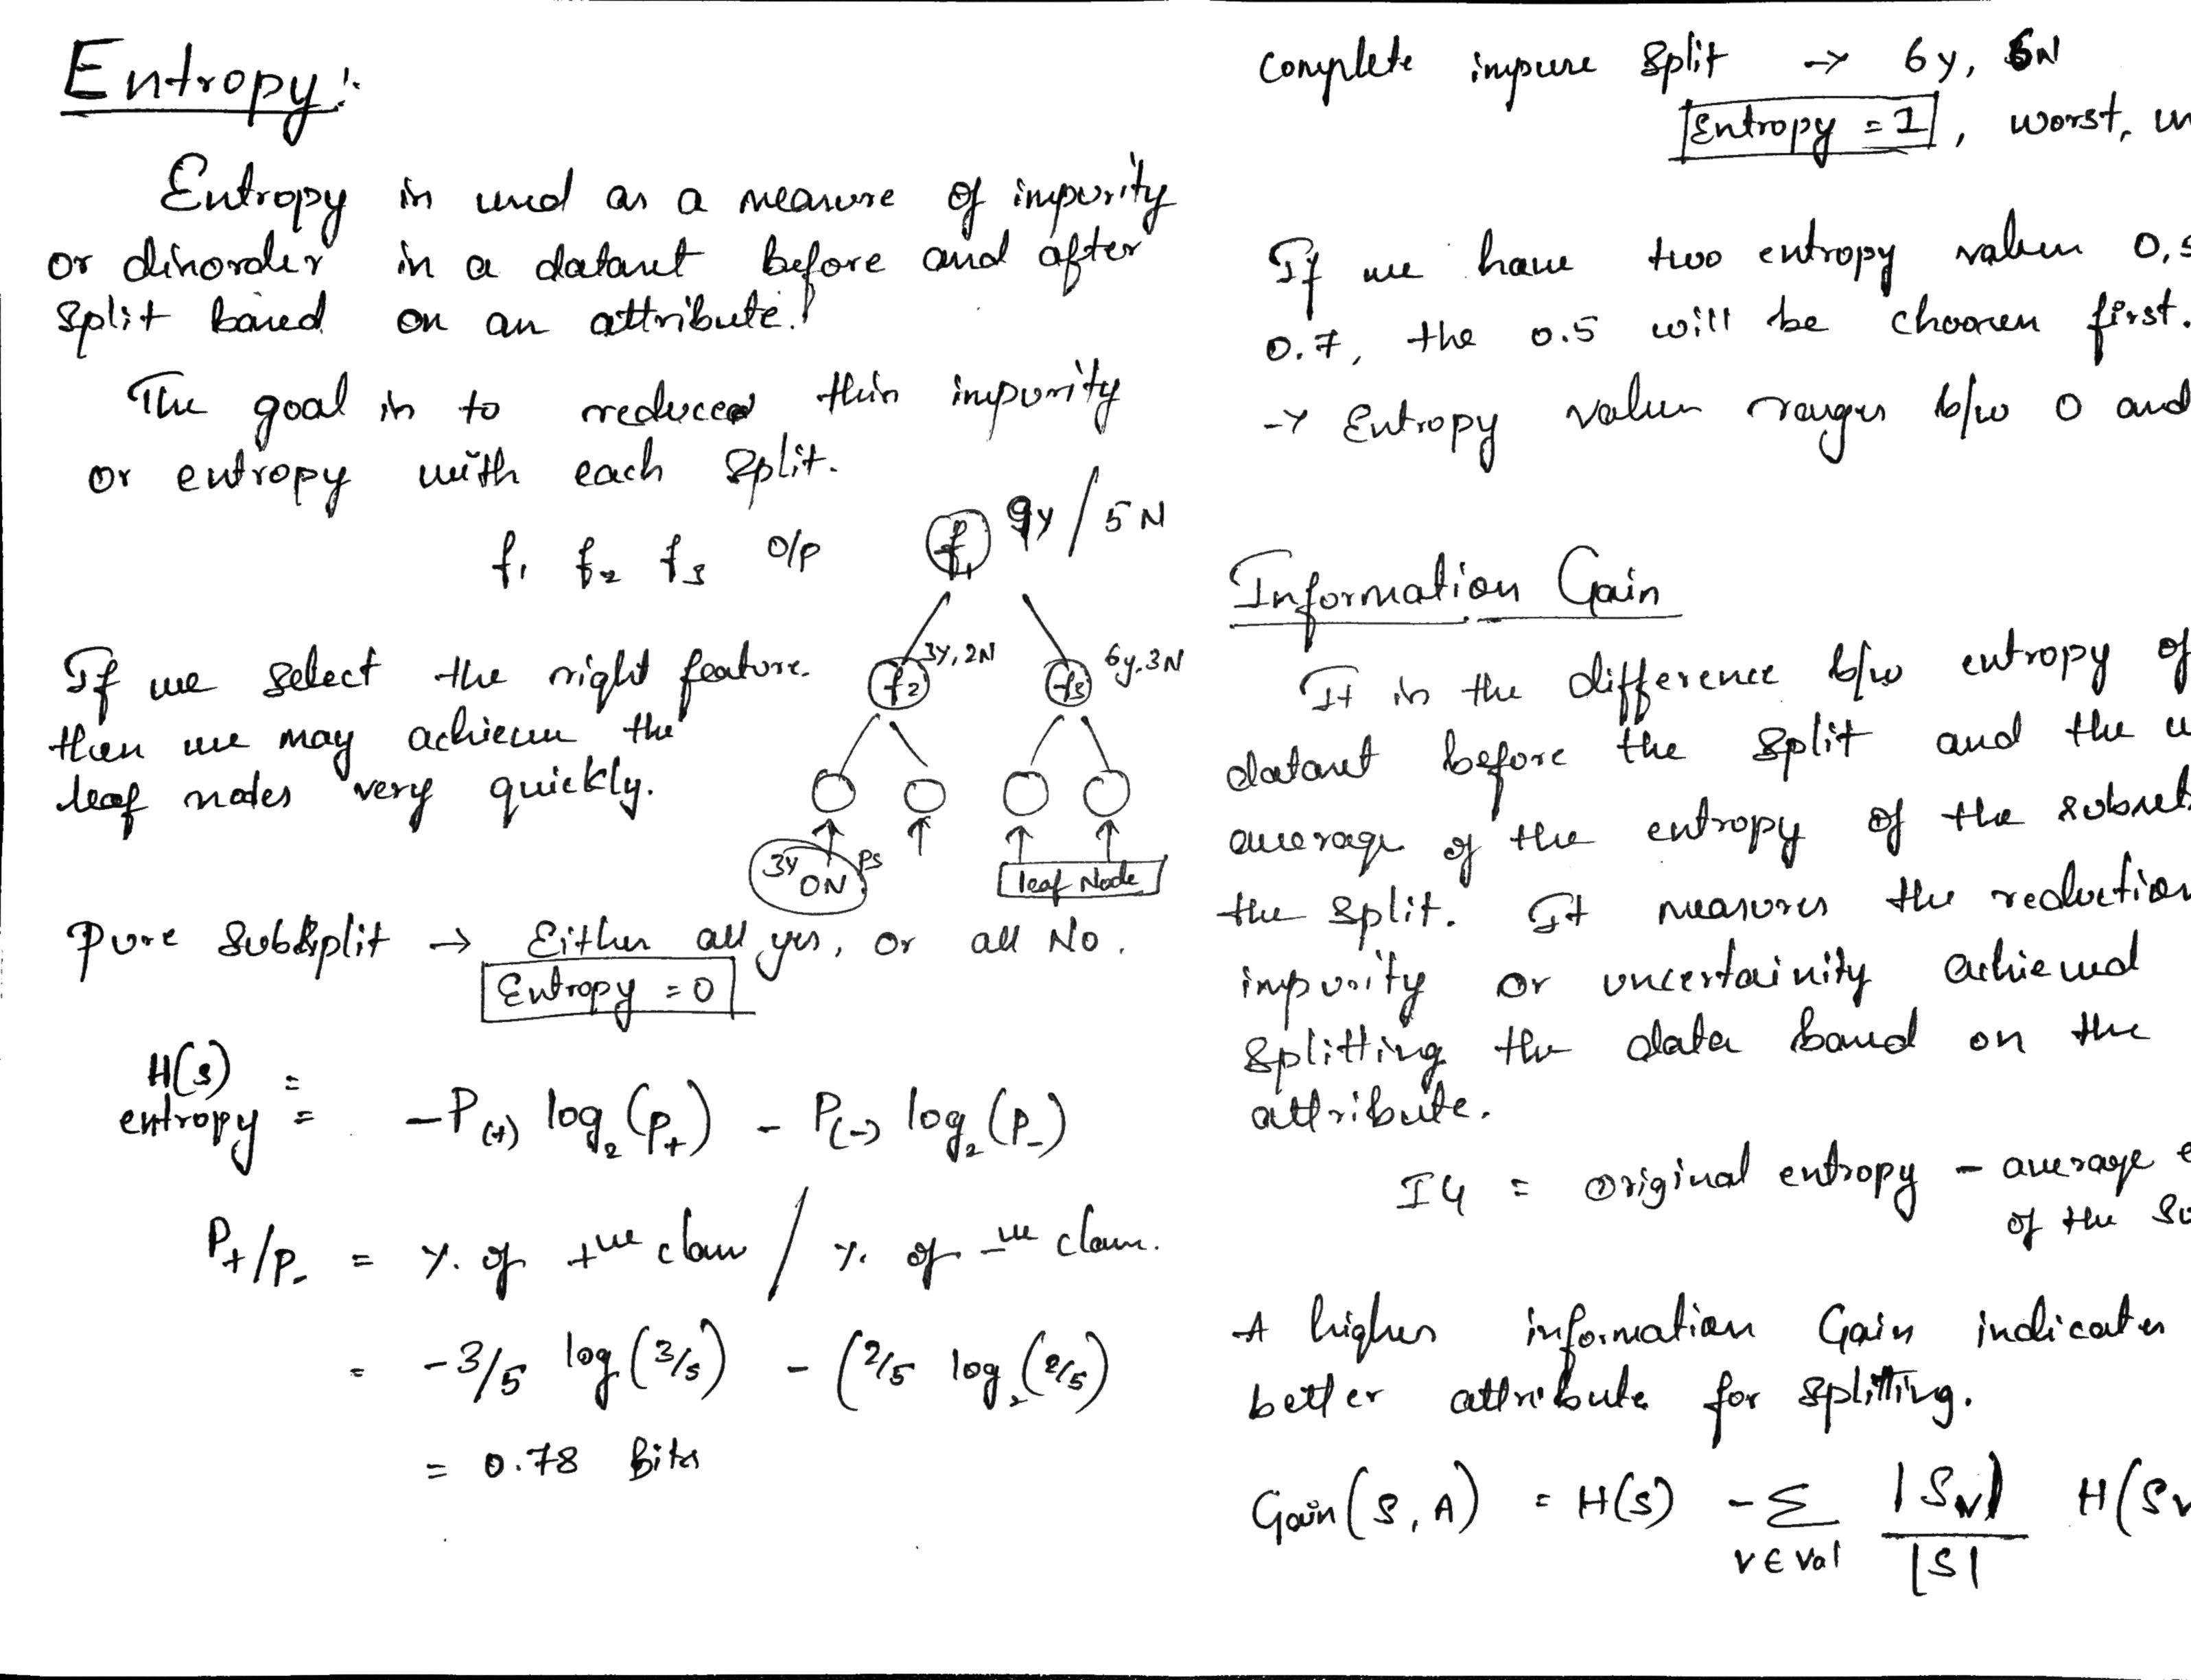 Entropy:
Entropy is used as a measure of impurity
or disorder in a dataset before and after
split based on an attribute.
The goal is to reduced this impurity
or entropy with each split.
f1 f2 f3 o/p
f1 9y / 5N
If we select the right feature.
then we may achieve the
leaf nodes very quickly.
f2 3y, 2N f3 6y, 3N
3y 0N PS
leaf Node
Pure subsplit → Either all yes, or all No.
Entropy = 0
H(s) =
entropy = -P(+) log2 (P+) - P(-) log2 (P-)
P+/P- = % of +ve class / % of -ve class.
= -3/5 log (3/5) - (2/5 log2 (2/5)
= 0.78 Bits
Complete impure split → 6y, 6N
Entropy = 1, worst,
If we have two entropy values 0,5
0.7, the 0.5 will be choosen first.
→ Entropy values ranges b/w 0 and
Information Gain
It is the difference b/w entropy of
dataset before the split and the
average of the entropy of the subset
the split. It measures the reduction
impurity or uncertainity achieved
splitting the data based on the
attribute.
IG = original entropy - average
of the
A higher information Gain indicates
better attribute for splitting.
Gain (S, A) = H(S) - Σ v∈val |Sv| / |S| H(Sv